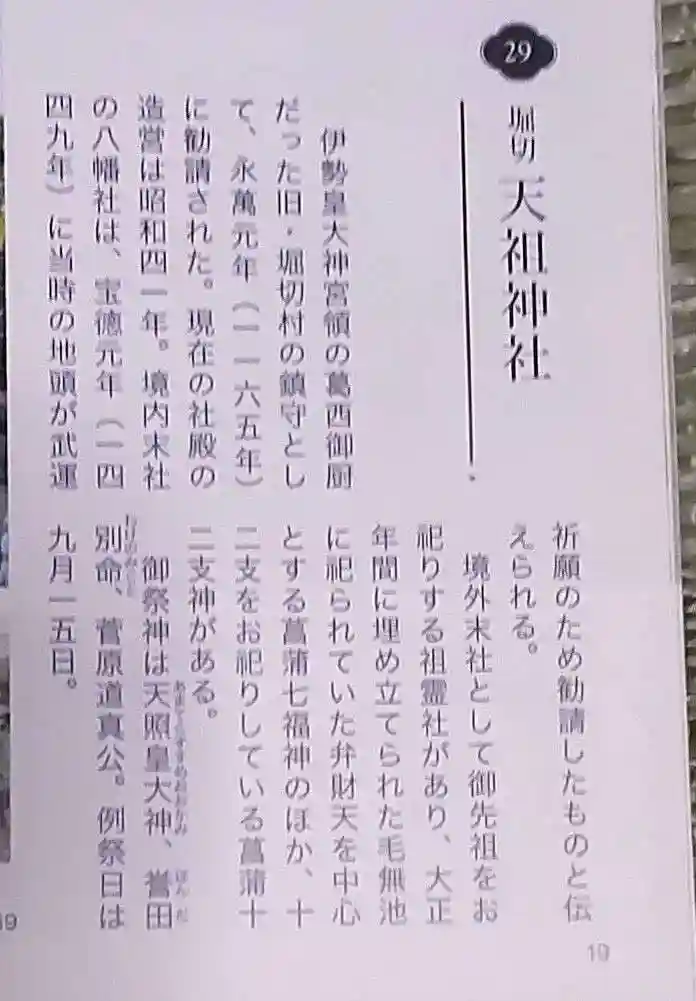 29
堀切 天祖神社
伊勢皇大神宮領の葛西御厨
だった旧・堀切村の鎮守とし
て、永萬元年（一一六五年）
に勧請された。現在の社殿の
造営は昭和四一年。境内末社
の八幡社は、宝徳元年（一四
四九年）に当時の地頭が武運
祈願のため勧請したものと伝
えられる。
境外末社として御先祖をお
祀りする祖霊社があり、大正
年間に埋め立てられた毛無池
に祀られていた弁財天を中心
とする菖蒲七福神のほか、十
二支をお祀りしている菖蒲十
二支神がある。
御祭神は天照皇大神、誉田
別命、菅原道真公。例祭日は
九月一五日。
19